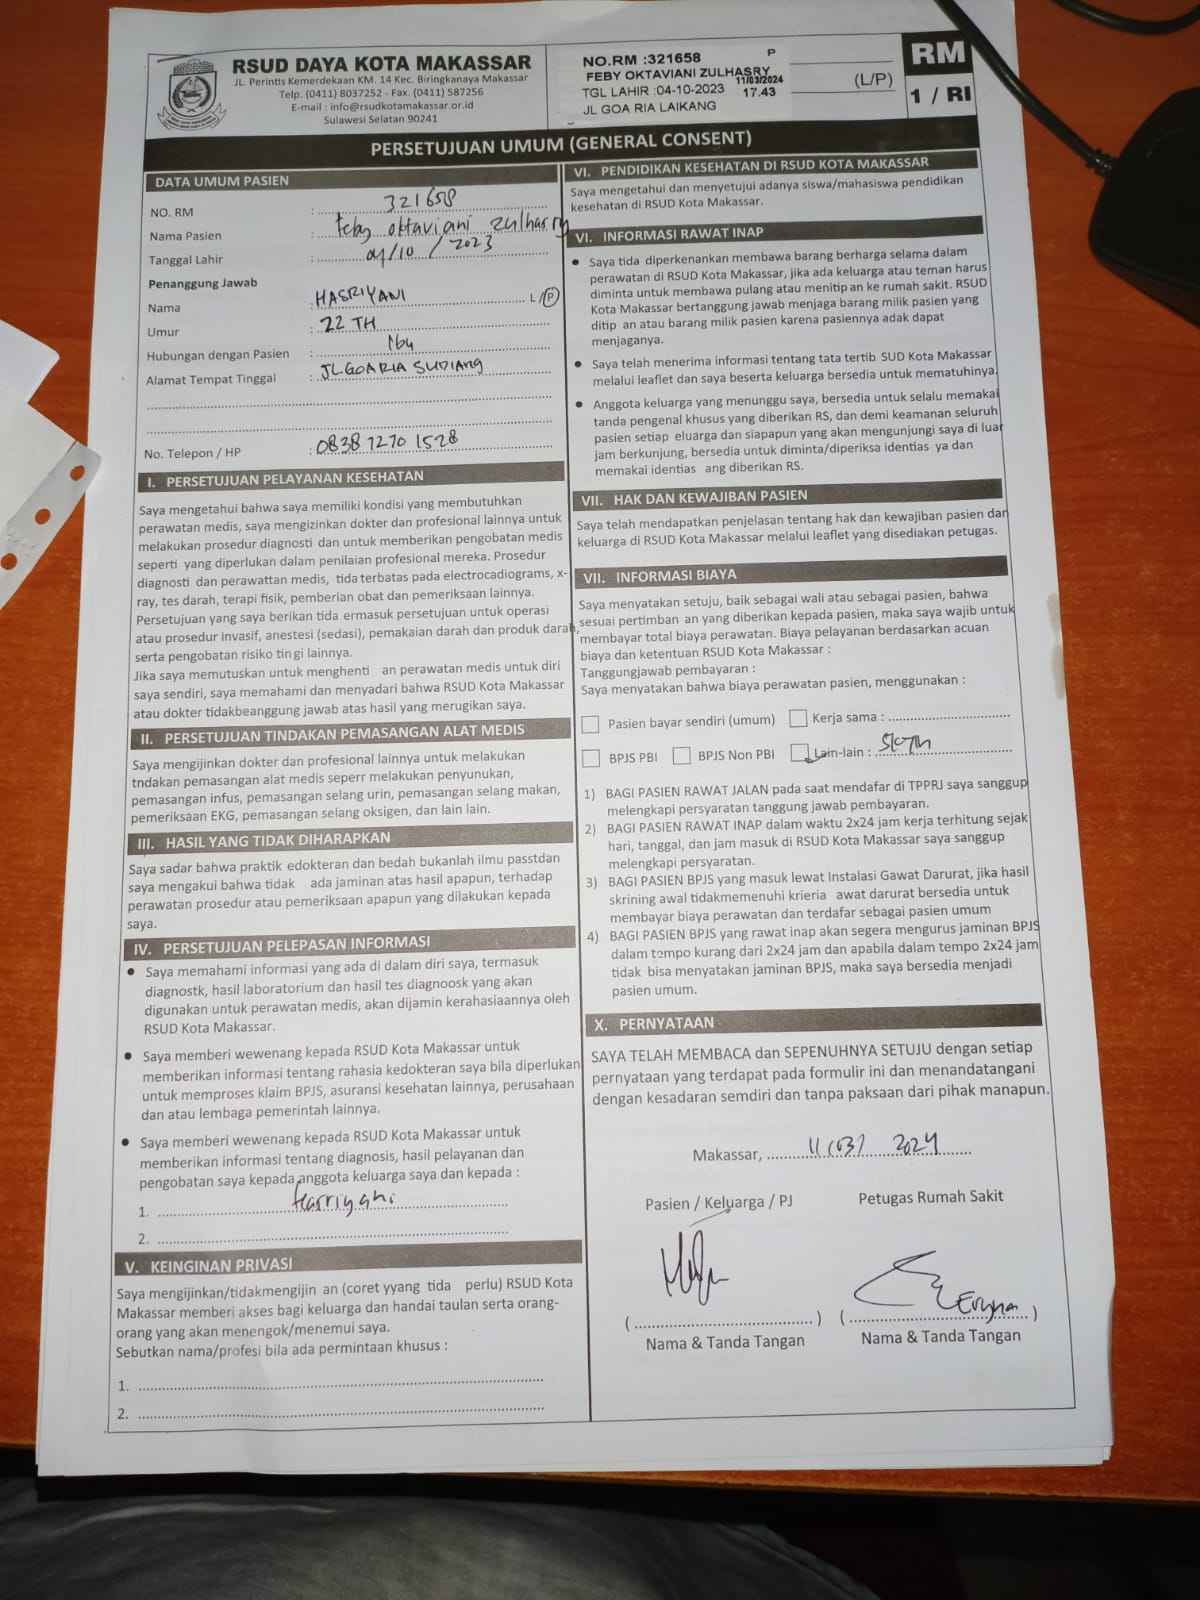 RSUD DAYA KOTA MAKASSAR
JL. Perintis Kemerdekaan KM. 14 Kec. Biringkanaya Makassar
Telp. (0411) 8037252 - Fax. (0411) 587256
E-mail : info@rsudkotamakassar.or.id
Sulawesi Selatan 90241
NO.RM :321658 P
FEBY OKTAVIANI ZULHASRY
11/03/2024
TGL LAHIR :04-10-2023 17.43
JL GOA RIA LAIKANG
(L/P)
RM
1 / RI
PERSETUJUAN UMUM (GENERAL CONSENT)
DATA UMUM PASIEN
NO. RM : 321658
Nama Pasien : feby oktaviani zulhasry
Tanggal Lahir : 04/10/2023
Penanggung Jawab
Nama : HASRIYANI L/P
Umur : 22 TH
Hubungan dengan Pasien : Ibu
Alamat Tempat Tinggal : JL GOARIA SUDIANG
No. Telepon / HP : 0838 1270 1528
I. PERSETUJUAN PELAYANAN KESEHATAN
Saya mengetahui bahwa saya memiliki kondisi yang membutuhkan
perawatan medis, saya mengizinkan dokter dan profesional lainnya untuk
melakukan prosedur diagnosti dan untuk memberikan pengobatan medis
seperti yang diperlukan dalam penilaian profesional mereka. Prosedur
diagnosti dan perawattan medis, tida terbatas pada electrocadiograms, x-
ray, tes darah, terapi fisik, pemberian obat dan pemeriksaan lainnya.
Persetujuan yang saya berikan tida ermasuk persetujuan untuk operasi
atau prosedur invasif, anestesi (sedasi), pemakaian darah dan produk darah,
serta pengobatan risiko tin gi lainnya.
Jika saya memutuskan untuk menghenti an perawatan medis untuk diri
saya sendiri, saya memahami dan menyadari bahwa RSUD Kota Makassar
atau dokter tidakbeanggung jawab atas hasil yang merugikan saya.
II. PERSETUJUAN TINDAKAN PEMASANGAN ALAT MEDIS
Saya mengijinkan dokter dan profesional lainnya untuk melakukan
tndakan pemasangan alat medis seperr melakukan penyunukan,
pemasangan infus, pemasangan selang urin, pemasangan selang makan,
pemeriksaan EKG, pemasangan selang oksigen, dan lain lain.
III. HASIL YANG TIDAK DIHARAPKAN
Saya sadar bahwa praktik edokteran dan bedah bukanlah ilmu passtdan
saya mengakui bahwa tidak ada jaminan atas hasil apapun, terhadap
perawatan prosedur atau pemeriksaan apapun yang dilakukan kepada
saya.
IV. PERSETUJUAN PELEPASAN INFORMASI
• Saya memahami informasi yang ada di dalam diri saya, termasuk
diagnostk, hasil laboratorium dan hasil tes diagnoosk yang akan
digunakan untuk perawatan medis, akan dijamin kerahasiaannya oleh
RSUD Kota Makassar.
• Saya memberi wewenang kepada RSUD Kota Makassar untuk
memberikan informasi tentang rahasia kedokteran saya bila diperlukan
untuk memproses klaim BPJS, asuransi kesehatan lainnya, perusahaan
dan atau lembaga pemerintah lainnya.
• Saya memberi wewenang kepada RSUD Kota Makassar untuk
memberikan informasi tentang diagnosis, hasil pelayanan dan
pengobatan saya kepada anggota keluarga saya dan kepada :
1. Hasriyani
2.
V. KEINGINAN PRIVASI
Saya mengijinkan/tidakmengijin an (coret yyang tida perlu) RSUD Kota
Makassar memberi akses bagi keluarga dan handai taulan serta orang-
orang yang akan menengok/menemui saya.
Sebutkan nama/profesi bila ada permintaan khusus :
1.
2.
VI. PENDIDIKAN KESEHATAN DI RSUD KOTA MAKASSAR
Saya mengetahui dan menyetujui adanya siswa/mahasiswa pendidikan
kesehatan di RSUD Kota Makassar.
VI. INFORMASI RAWAT INAP
• Saya tida diperkenankan membawa barang berharga selama dalam
perawatan di RSUD Kota Makassar, jika ada keluarga atau teman harus
diminta untuk membawa pulang atau menitip an ke rumah sakit. RSUD
Kota Makassar bertanggung jawab menjaga barang milik pasien yang
ditip an atau barang milik pasien karena pasiennya adak dapat
menjaganya.
• Saya telah menerima informasi tentang tata tertib SUD Kota Makassar
melalui leaflet dan saya beserta keluarga bersedia untuk mematuhinya.
• Anggota keluarga yang menunggu saya, bersedia untuk selalu memakai
tanda pengenal khusus yang diberikan RS, dan demi keamanan seluruh
pasien setiap eluarga dan siapapun yang akan mengunjungi saya di luar
jam berkunjung, bersedia untuk diminta/diperiksa identias ya dan
memakai identias ang diberikan RS.
VII. HAK DAN KEWAJIBAN PASIEN
Saya telah mendapatkan penjelasan tentang hak dan kewajiban pasien dan
keluarga di RSUD Kota Makassar melalui leaflet yang disediakan petugas.
VII. INFORMASI BIAYA
Saya menyatakan setuju, baik sebagai wali atau sebagai pasien, bahwa
sesuai pertimban an yang diberikan kepada pasien, maka saya wajib untuk
membayar total biaya perawatan. Biaya pelayanan berdasarkan acuan
biaya dan ketentuan RSUD Kota Makassar :
Tanggungjawab pembayaran :
Saya menyatakan bahwa biaya perawatan pasien, menggunakan :
Pasien bayar sendiri (umum) Kerja sama :
BPJS PBI BPJS Non PBI Lain-lain :
1) BAGI PASIEN RAWAT JALAN pada saat mendafar di TPPRJ saya sanggup
melengkapi persyaratan tanggung jawab pembayaran.
2) BAGI PASIEN RAWAT INAP dalam waktu 2x24 jam kerja terhitung sejak
hari, tanggal, dan jam masuk di RSUD Kota Makassar saya sanggup
melengkapi persyaratan.
3) BAGI PASIEN BPJS yang masuk lewat Instalasi Gawat Darurat, jika hasil
skrining awal tidakmemenuhi krieria awat darurat bersedia untuk
membayar biaya perawatan dan terdafar sebagai pasien umum
4) BAGI PASIEN BPJS yang rawat inap akan segera mengurus jaminan BPJS
dalam tempo kurang dari 2x24 jam dan apabila dalam tempo 2x24 jam
tidak bisa menyatakan jaminan BPJS, maka saya bersedia menjadi
pasien umum.
X. PERNYATAAN
SAYA TELAH MEMBACA dan SEPENUHNYA SETUJU dengan setiap
pernyataan yang terdapat pada formulir ini dan menandatangani
dengan kesadaran semdiri dan tanpa paksaan dari pihak manapun.
Makassar, 11/03/2024
Pasien / Keluarga / PJ Petugas Rumah Sakit
(....) (....)
Nama & Tanda Tangan Nama & Tanda Tangan